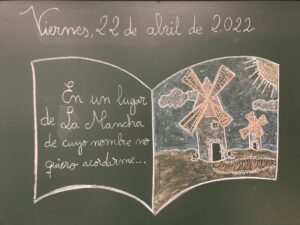 Viernes, 22 de abril de 2.022
En un lugar
de La Mancha
de cuyo nombre no
quiero acordarme...